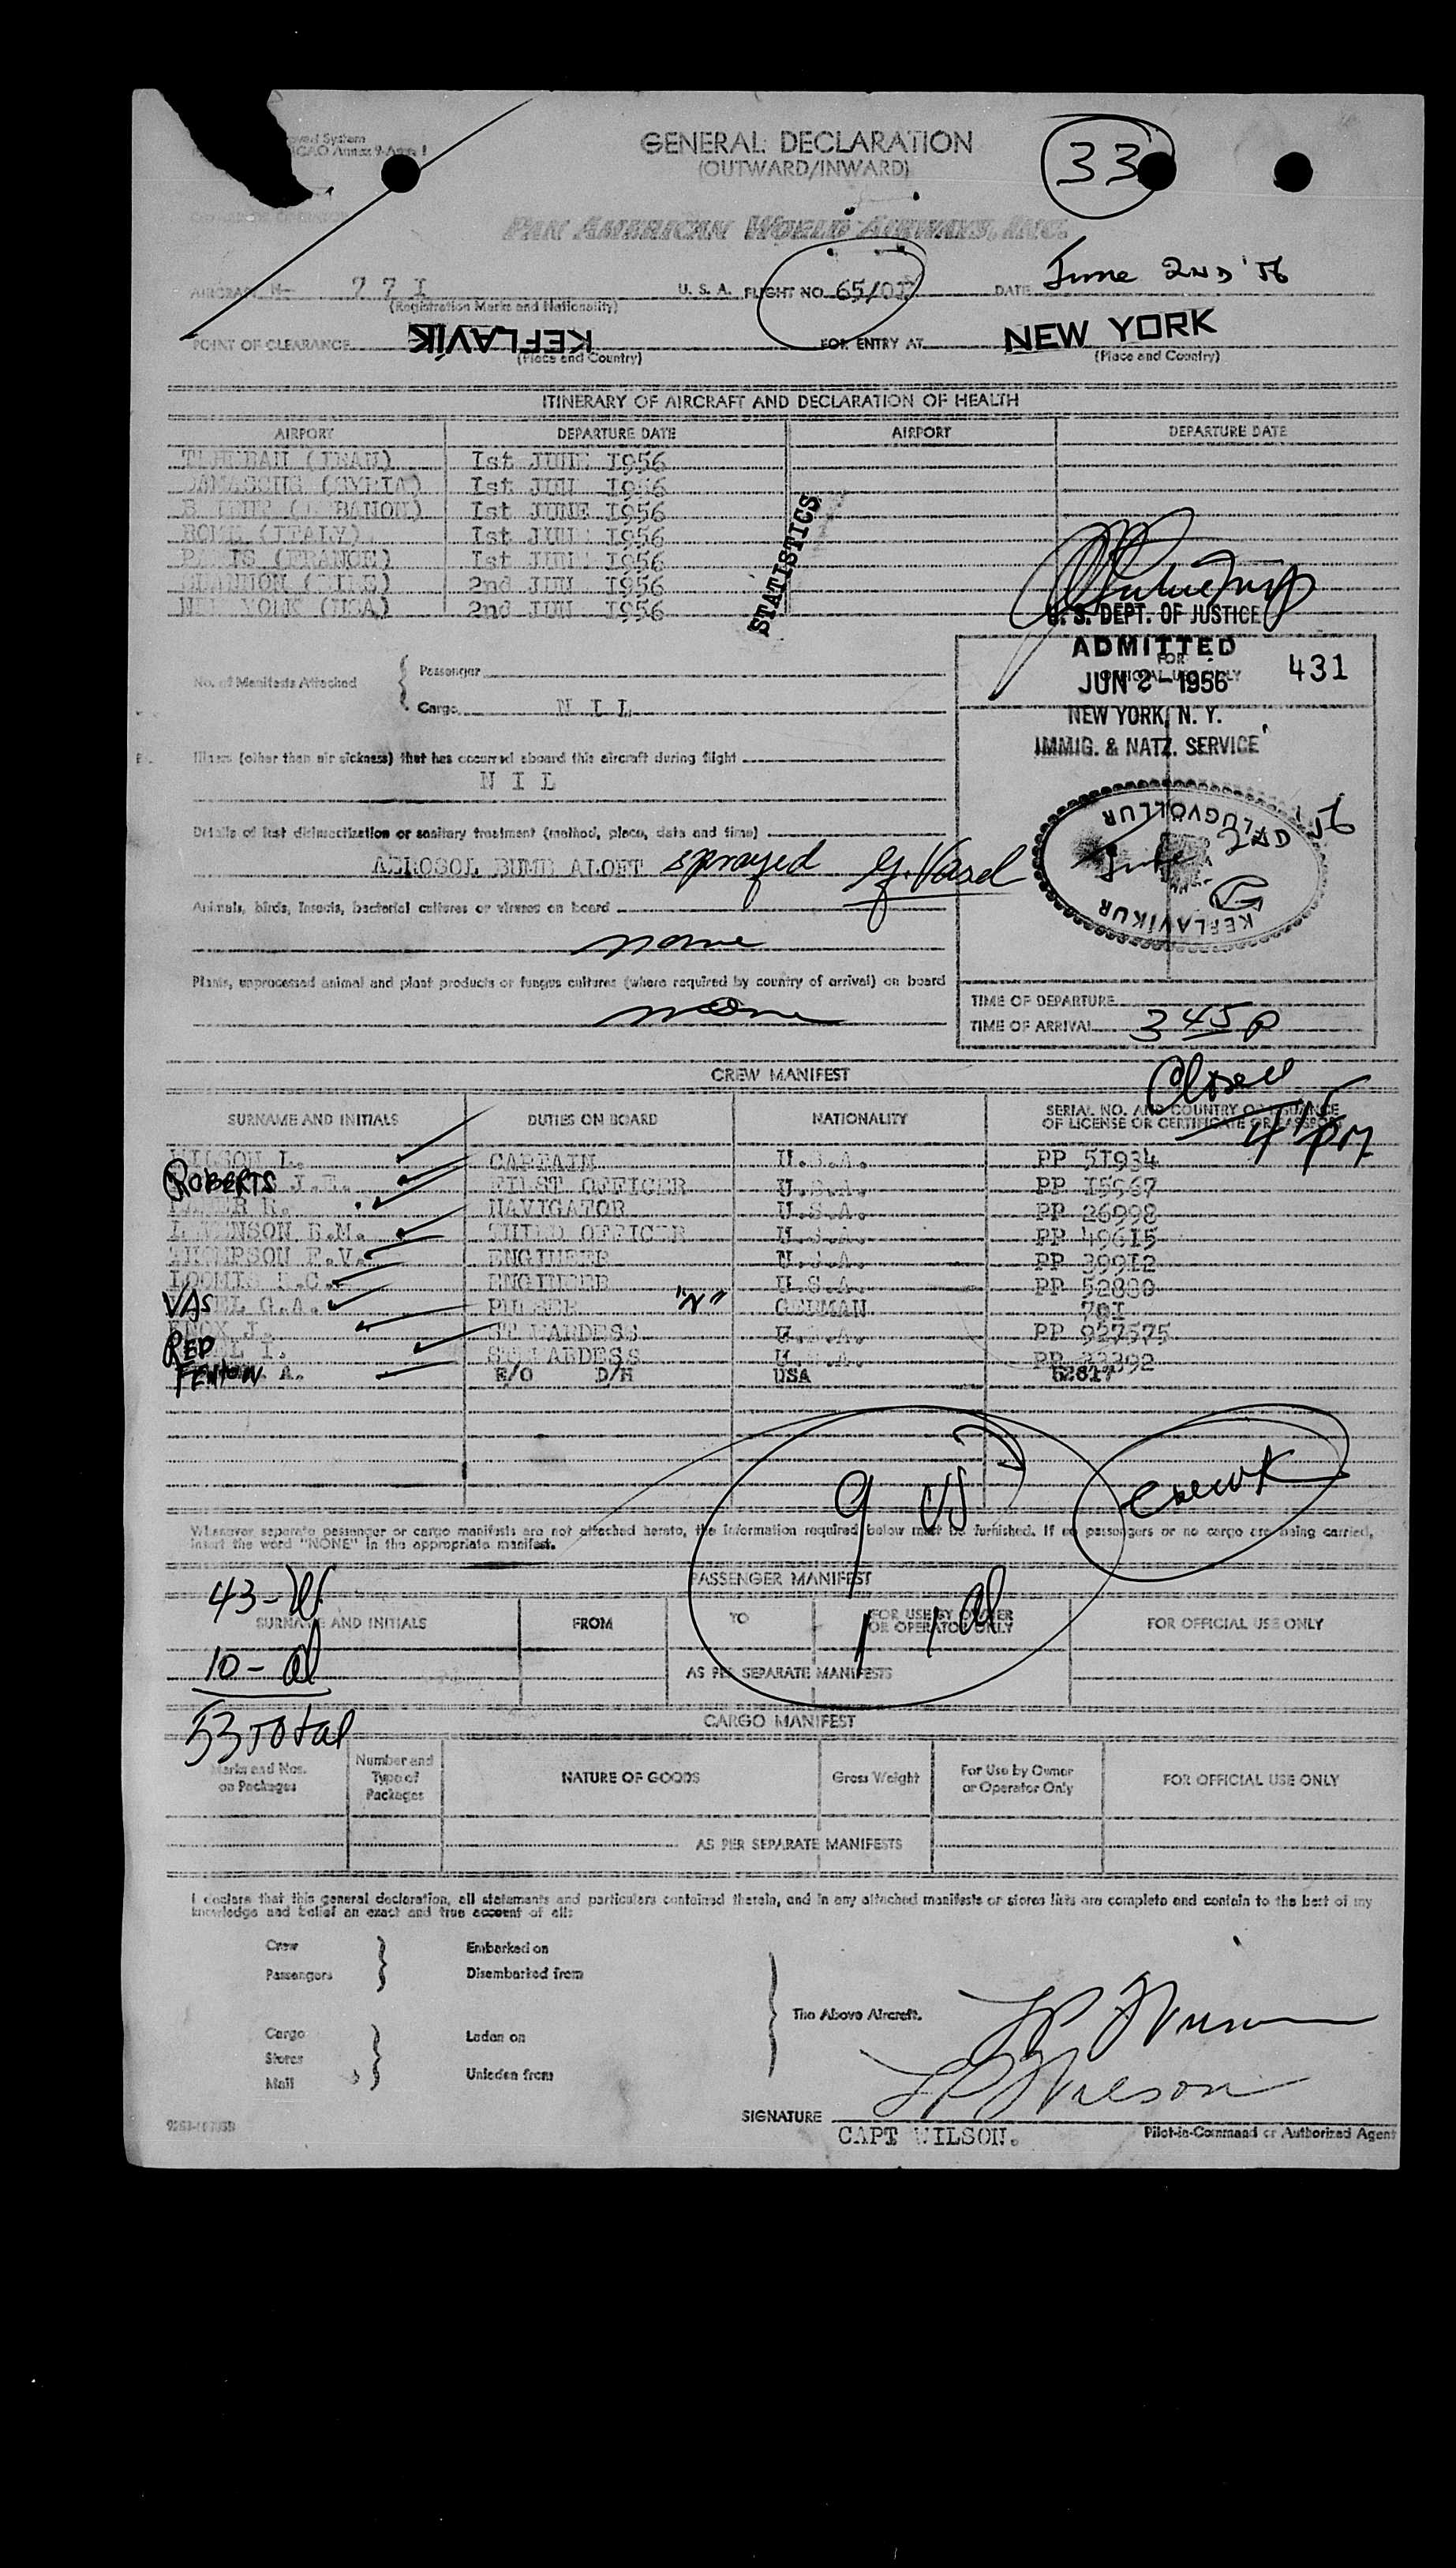 GENERAL DECLARATION
(OUTWARD/INWARD)
33
PAN AMERICAN WORLD AIRWAYS, INC.
AIRCRAFT N- 77I U. S. A. FLIGHT NO. 65/ DATE June 2ND '56
(Registration Marks and Nationality)
POINT OF CLEARANCE KEFLAVIK FOR ENTRY AT NEW YORK
(Place and Country) (Place and Country)
ITINERARY OF AIRCRAFT AND DECLARATION OF HEALTH
AIRPORT DEPARTURE DATE AIRPORT DEPARTURE DATE
(IRAN) Ist JUNE I956
DAMASCUS (SYRIA) Ist JUN I956
(LEBANON) Ist JUNE I956
ROME (ITALY) Ist JUN I956
(FRANCE) Ist JUN I956
SHANNON (EIRE) 2nd JUN I956
NEW YORK (USA) 2nd JUN I956
STATISTICS
U. S. DEPT. OF JUSTICE
ADMITTED
FOR
JUN 2 - 1956 431
NEW YORK, N. Y.
IMMIG. & NATZ. SERVICE
No. of Manifests Attached
Passenger
Cargo N I L
Illness (other than air sickness) that has occurred aboard this aircraft during flight
N I L
Details of last disinsectization or sanitary treatment (method, place, date and time)
AEROSOL BOMB ALOFT sprayed G. Vasel
FLUGVOLLUR
June 2ND '56
KEFLAVIKUR
Animals, birds, insects, bacterial cultures or viruses on board
none
Plants, unprocessed animal and plant products or fungus cultures (where required by country of arrival) on board
none
TIME OF DEPARTURE
TIME OF ARRIVAL 3 45 P
Closed
4 15 PM
CREW MANIFEST
SURNAME AND INITIALS DUTIES ON BOARD NATIONALITY SERIAL NO. AND COUNTRY OF ISSUANCE
OF LICENSE OR CERTIFICATE OR PASSPORT
WILSON L. CAPTAIN U.S.A. PP 5I934
ROBERTS J.E. FIRST OFFICER U.S.A. PP I5967
NAVIGATOR U.S.A. PP 26998
THIRD OFFICER U.S.A. PP 496I5
THOMPSON F.V. ENGINEER U.S.A. PP 399I2
LOOMIS ENGINEER U.S.A. PP 52880
VASEL G.A. PURSER "N" GERMAN 70I
KNOX J. STEWARDESS U.S.A. PP 927575
STEWARDESS U.S.A. PP
FENTON A. E/O D/H USA 52817
9 US
1 al
crew
Whenever separate passenger or cargo manifests are not attached hereto, the information required below must be furnished. If no passengers or no cargo are being carried,
insert the word "NONE" in the appropriate manifest.
PASSENGER MANIFEST
43 - US
SURNAME AND INITIALS FROM TO FOR USE BY OWNER
OR OPERATOR ONLY FOR OFFICIAL USE ONLY
10 - al
AS PER SEPARATE MANIFESTS
53 Total
CARGO MANIFEST
Marks and Nos.
on Packages Number and
Type of
Packages NATURE OF GOODS Gross Weight For Use by Owner
or Operator Only FOR OFFICIAL USE ONLY
AS PER SEPARATE MANIFESTS
I declare that this general declaration, all statements and particulars contained therein, and in any attached manifests or stores lists are complete and contain to the best of my
knowledge and belief an exact and true account of all:
Crew Embarked on
Passengers Disembarked from
The Above Aircraft.
Cargo Laden on
Stores
Mail Unladen from
L P Wilson
L P Wilson
SIGNATURE
CAPT WILSON. Pilot-in-Command or Authorized Agent